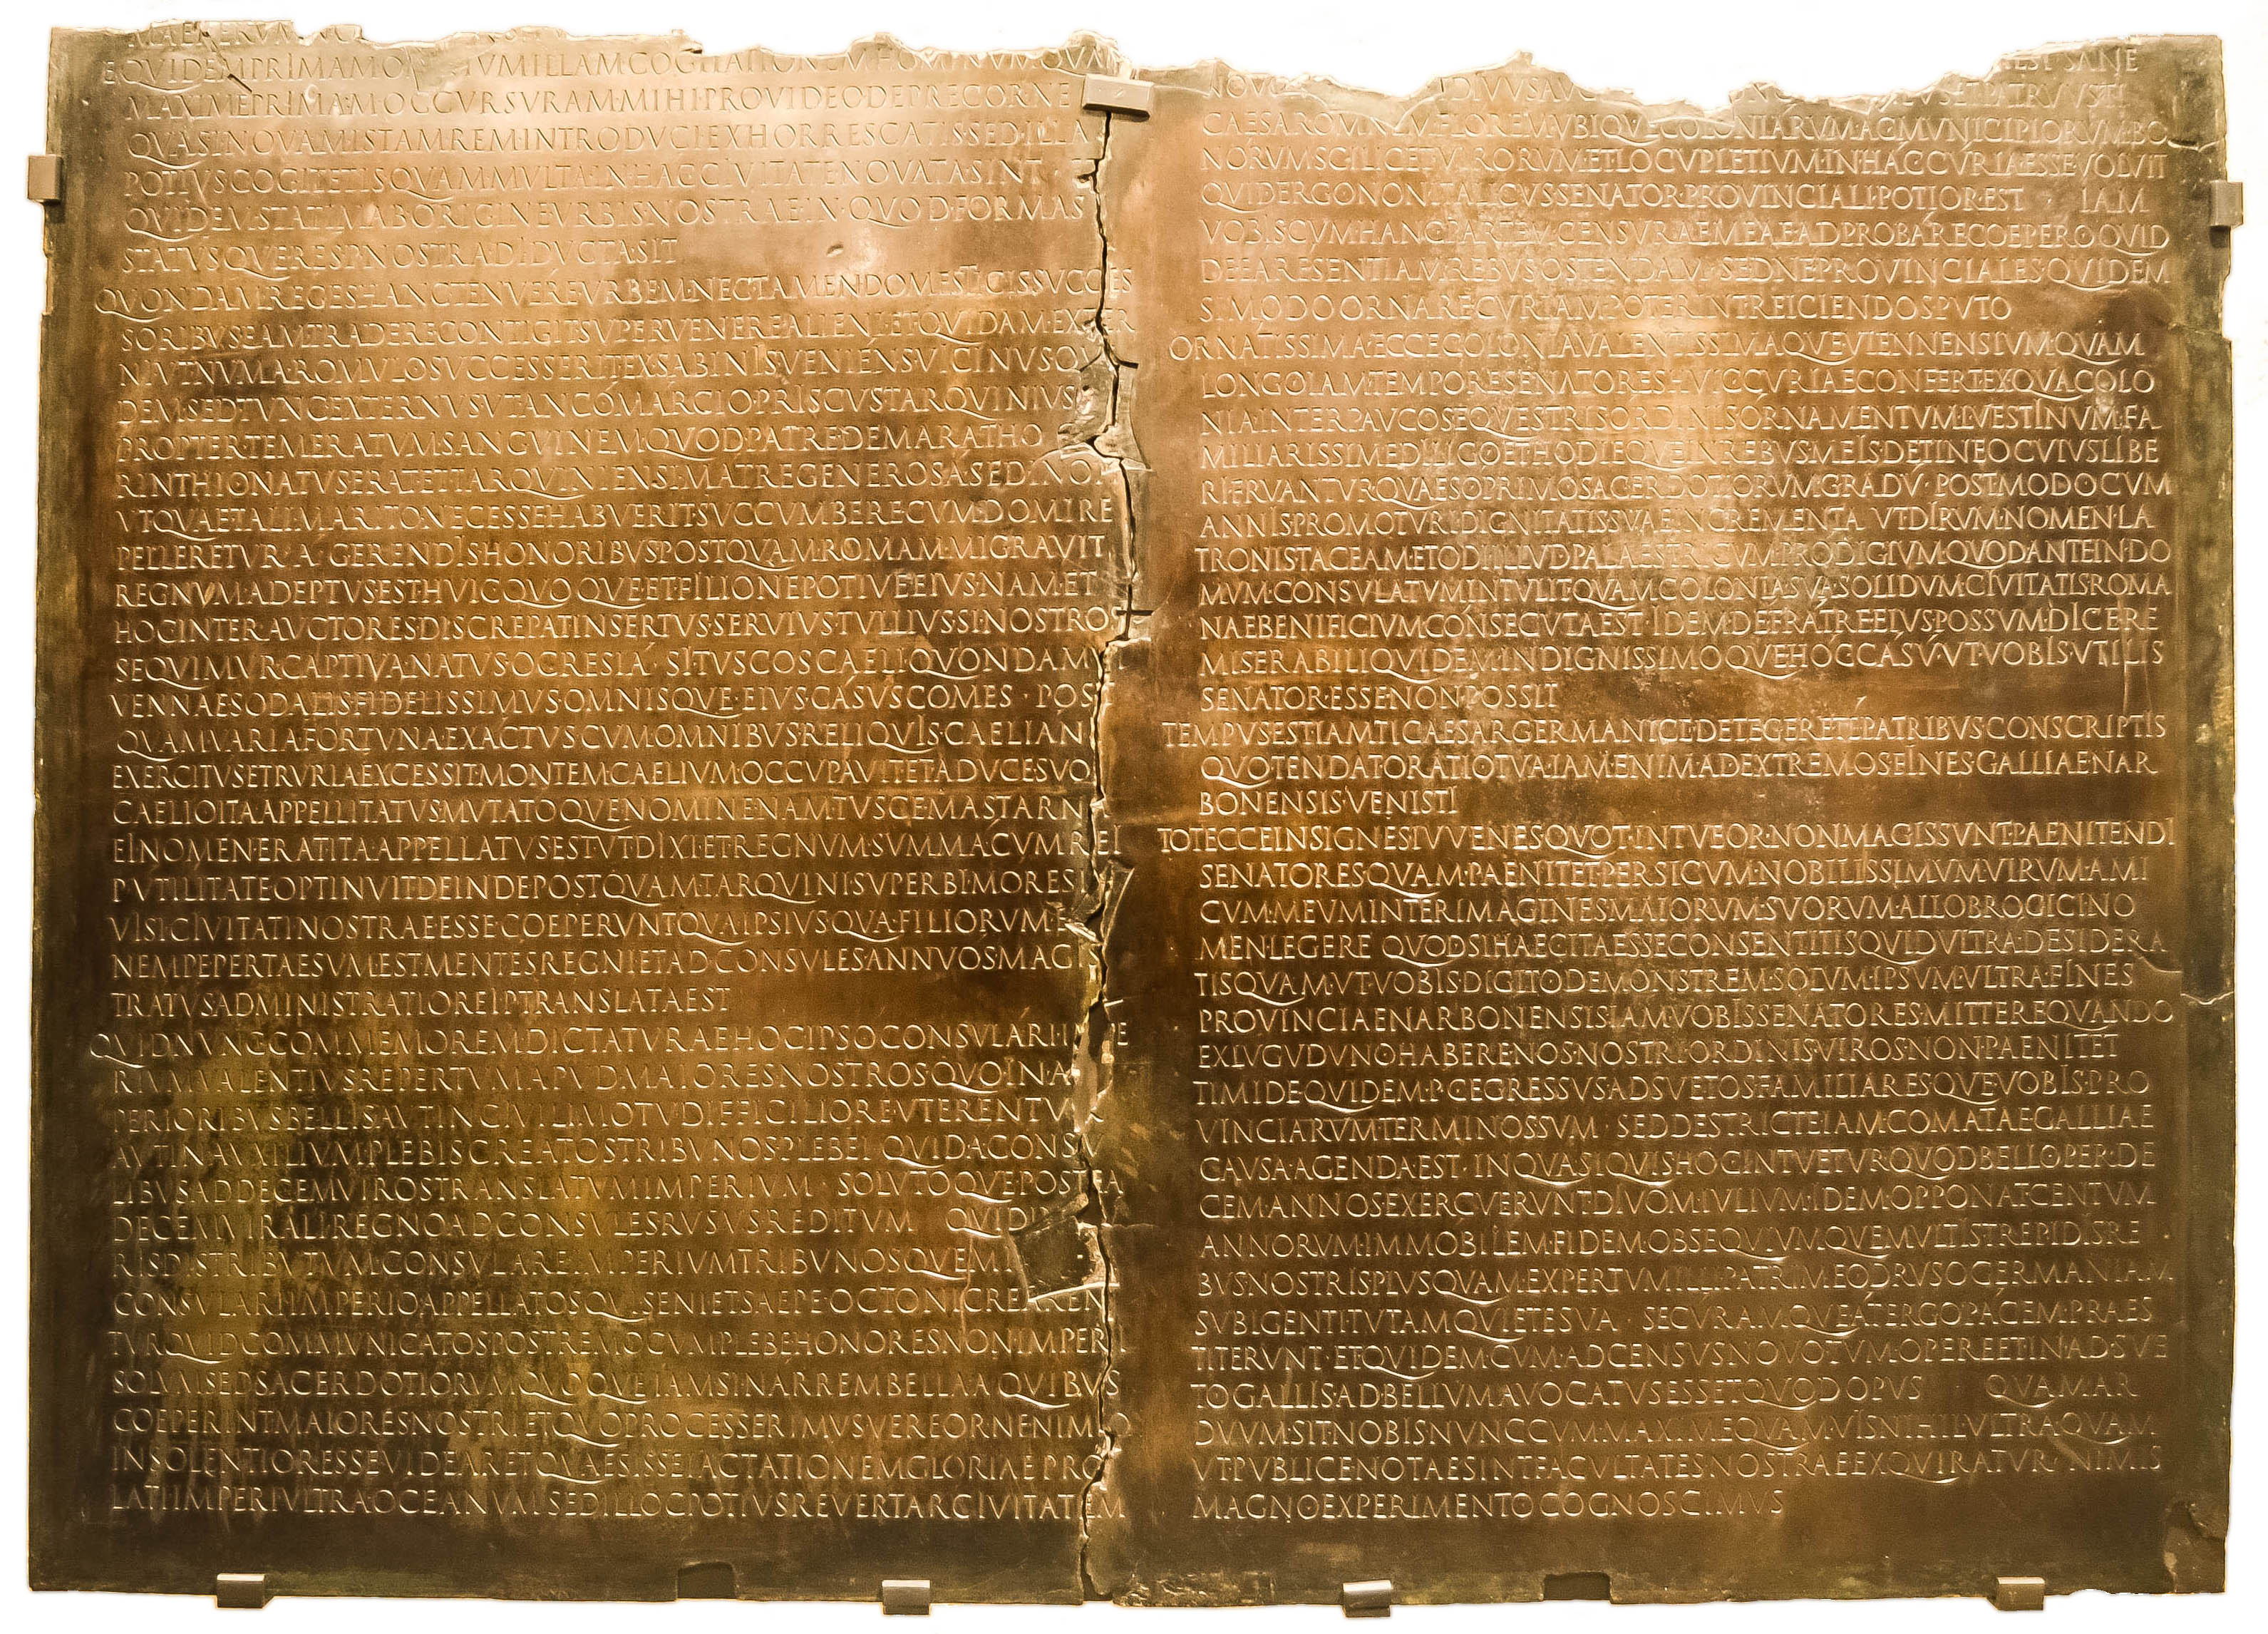 MAE RERVM N
EQVIDEM PRIMAM OMNIVM ILLAM COGITATIONEM HOMINVM QVAM
MAXIME PRIMAM OCCVRSVRAM MIHI PROVIDEO DEPRECOR NE
QVASI NOVAM ISTAM REM INTRODVCI EXHORRESCATIS SED ILLA
POTIVS COGITETIS QVAM MVLTA IN HAC CIVITATE NOVATA SINT
QVIDEM STATIM AB ORIGINE VRBIS NOSTRAE IN QVOD FORMAS
STATVSQVE RES P NOSTRA DIDVCTA SIT
QVONDAM REGES HANC TENVERE VRBEM NEC TAMEN DOMESTICIS SVCCES
SORIBVS EAM TRADERE CONTIGIT SVPERVENERE ALIENI ET QVIDAM EXTER
NI VT NVMA ROMVLO SVCCESSERIT EX SABINIS VENIENS VICINVS QVI
DEM SED TVNC EXTERNVS VT ANCO MARCIO PRISCVS TARQVINIVS
PROPTER TEMERATVM SANGVINEM QVOD PATRE DEMARATHO
RINTHIO NATVS ERAT ET TARQVINIENSI MATRE GENEROSA SED INOPI
VT QVAE TALI MARITO NECESSE HABVERIT SVCCVMBERE CVM DOMI RE
PELLERETVR A GERENDIS HONORIBVS POSTQVAM ROMAM MIGRAVIT
REGNVM ADEPTVS EST HVIC QVOQVE ET FILIO NEPOTIVE EIVS NAM ET
HOC INTER AVCTORES DISCREPAT INSERTVS SERVIVS TVLLIVS SI NOSTROS
SEQVIMVR CAPTIVA NATVS OCRESIA SI TVSCOS CAELI QVONDAM VI
VENNAE SODALIS FIDELISSIMVS OMNISQVE EIVS CASVS COMES POST
QVAM VARIA FORTVNA EXACTVS CVM OMNIBVS RELIQVIS CAELIANI
EXERCITVS ETRVRIA EXCESSIT MONTEM CAELIVM OCCVPAVIT ET A DVCE SVO
CAELIO ITA APPELLITATVS MVTATOQVE NOMINE NAM TVSCE MASTARNA
EI NOMEN ERAT ITA APPELLATVS EST VT DIXI ET REGNVM SVMMA CVM REI
P VTILITATE OPTINVIT DEINDE POSTQVAM TARQVINI SVPERBI MORES IN
VISI CIVITATI NOSTRAE ESSE COEPERVNT QVA IPSIVS QVA FILIORVM EI
NEMPE PERTAESVM EST MENTES REGNI ET AD CONSVLES ANNVOS MAGIS
TRATVS ADMINISTRATIO REI P TRANSLATA EST
QVID NVNC COMMEMOREM DICTATVRAE HOC IPSO CONSVLARI IMPE
RIVM VALENTIVS REPERTVM APVD MAIORES NOSTROS QVO IN AS
PERIORIBVS BELLIS AVT IN CIVILI MOTV DIFFICILIORE VTERENTVR
AVT IN AVXILIVM PLEBIS CREATOS TRIBVNOS PLEBEI QVID A CONSV
LIBVS AD DECEMVIROS TRANSLATVM IMPERIVM SOLVTOQVE POSTEA
DECEMVIRALI REGNO AD CONSVLES RVSVS REDITVM QVID IN
RIS DISTRIBVTVM CONSVLARE IMPERIVM TRIBVNOSQVE MI
CONSVLARI IMPERIO APPELLATOS QVI SENI ET SAEPE OCTONI CREAREN
TVR QVID COMMVNICATOS POSTREMO CVM PLEBE HONORES NON IMPERI
SOLVM SED SACERDOTIORVM QVOQVE IAM SI NARREM BELLA A QVIBVS
COEPERINT MAIORES NOSTRI ET QVO PROCESSERIMVS VEREOR NE NIMIO
INSOLENTIOR ESSE VIDEAR ET QVAESISSE IACTATIONEM GLORIAE PRO
LATI IMPERI VLTRA OCEANVM SED ILLOC POTIVS REVERTAR CIVITATEM
EST SANE
NOVO DIVVS AVG NC LVS ET PATRVVS TI
CAESAR OMNEM FLOREM VBIQVE COLONIARVM AC MVNICIPIORVM BO
NORVM SCILICET VIRORVM ET LOCVPLETIVM IN HAC CVRIA ESSE VOLVIT
QVID ERGO NON ITALICVS SENATOR PROVINCIALI POTIOR EST IAM
VOBIS CVM HANC PARTEM CENSVRAE MEAE ADPROBARE COEPERO QVID
DE EA RE SENTIAM REBVS OSTENDAM SED NE PROVINCIALES QVIDEM
SI MODO ORNARE CVRIAM POTERINT REICIENDOS PVTO
ORNATISSIMA ECCE COLONIA VALENTISSIMAQVE VIENNENSIVM QVAM
LONGO IAM TEMPORE SENATORES HVIC CVRIAE CONFERT EX QVA COLO
NIA INTER PAVCOS EQVESTRIS ORDINIS ORNAMENTVM L VESTINVM FA
MILIARISSIME DILIGO ET HODIEQVE IN REBVS MEIS DETINEO CVIVS LIBE
RI FRVANTVR QVAESO PRIMO SACERDOTIORVM GRADV POST MODO CVM
ANNIS PROMOTVRI DIGNITATIS SVAE INCREMENTA VT DIRVM NOMEN LA
TRONIS TACEAM ET ODI ILLVD PALAESTRICVM PRODIGIVM QVOD ANTE IN DO
MVM CONSVLATVM INTVLIT QVAM COLONIA SVA SOLIDVM CIVITATIS ROMA
NAE BENIFICIVM CONSECVTA EST IDEM DE FRATRE EIVS POSSVM DICERE
MISERABILI QVIDEM INDIGNISSIMOQVE HOC CASV VT VOBIS VTILIS
SENATOR ESSE NON POSSIT
TEMPVS EST IAM TI CAESAR GERMANICE DETEGERE TE PATRIBVS CONSCRIPTIS
QVO TENDAT ORATIO TVA IAM ENIM AD EXTREMOS FINES GALLIAE NAR
BONENSIS VENISTI
TOT ECCE INSIGNES IVVENES QVOT INTVEOR NON MAGIS SVNT PAENITENDI
SENATORES QVAM PAENITET PERSICVM NOBILISSIMVM VIRVM AMI
CVM MEVM INTER IMAGINES MAIORVM SVORVM ALLOBROGICI NO
MEN LEGERE QVOD SI HAEC ITA ESSE CONSENTITIS QVID VLTRA DESIDERA
TIS QVAM VT VOBIS DIGITO DEMONSTREM SOLVM IPSVM VLTRA FINES
PROVINCIAE NARBONENSIS IAM VOBIS SENATORES MITTERE QVANDO
EX LVGVDVNO HABERE NOS NOSTRI ORDINIS VIROS NON PAENITET
TIMIDE QVIDEM P C EGRESSVS ADSVETOS FAMILIARESQVE VOBIS PRO
VINCIARVM TERMINOS SVM SED DESTRICTE IAM COMATAE GALLIAE
CAVSA AGENDA EST IN QVA SI QVIS HOC INTVETVR QVOD BELLO PER DE
CEM ANNOS EXERCVERVNT DIVOM IVLIVM IDEM OPPONAT CENTVM
ANNORVM IMMOBILEM FIDEM OBSEQVIVMQVE MVLTIS TREPIDIS RE
BVS NOSTRIS PLVS QVAM EXPERTVM ILLI PATRI MEO DRVSO GERMANIAM
SVBIGENTI TVTAM QVIETE SVA SECVRAMQVE A TERGO PACEM PRAES
TITERVNT ET QVIDEM CVM AD CENSVS NOVO TVM OPERE ET INADSVE
TO GALLIS AD BELLVM AVOCATVS ESSET QVOD OPVS QVAM AR
DVVM SIT NOBIS NVNC CVM MAXIME QVAMVIS NIHIL VLTRA QVAM
VT PVBLICE NOTAE SINT FACVLTATES NOSTRAE EXQVIRATVR NIMIS
MAGNO EXPERIMENTO COGNOSCIMVS